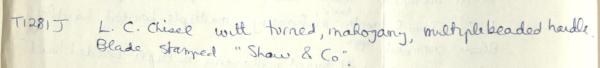 T1281J L. C. Chisel witt turned, mahogany, multiplebeaded handle.
Blade stamped "Shaw & Co".